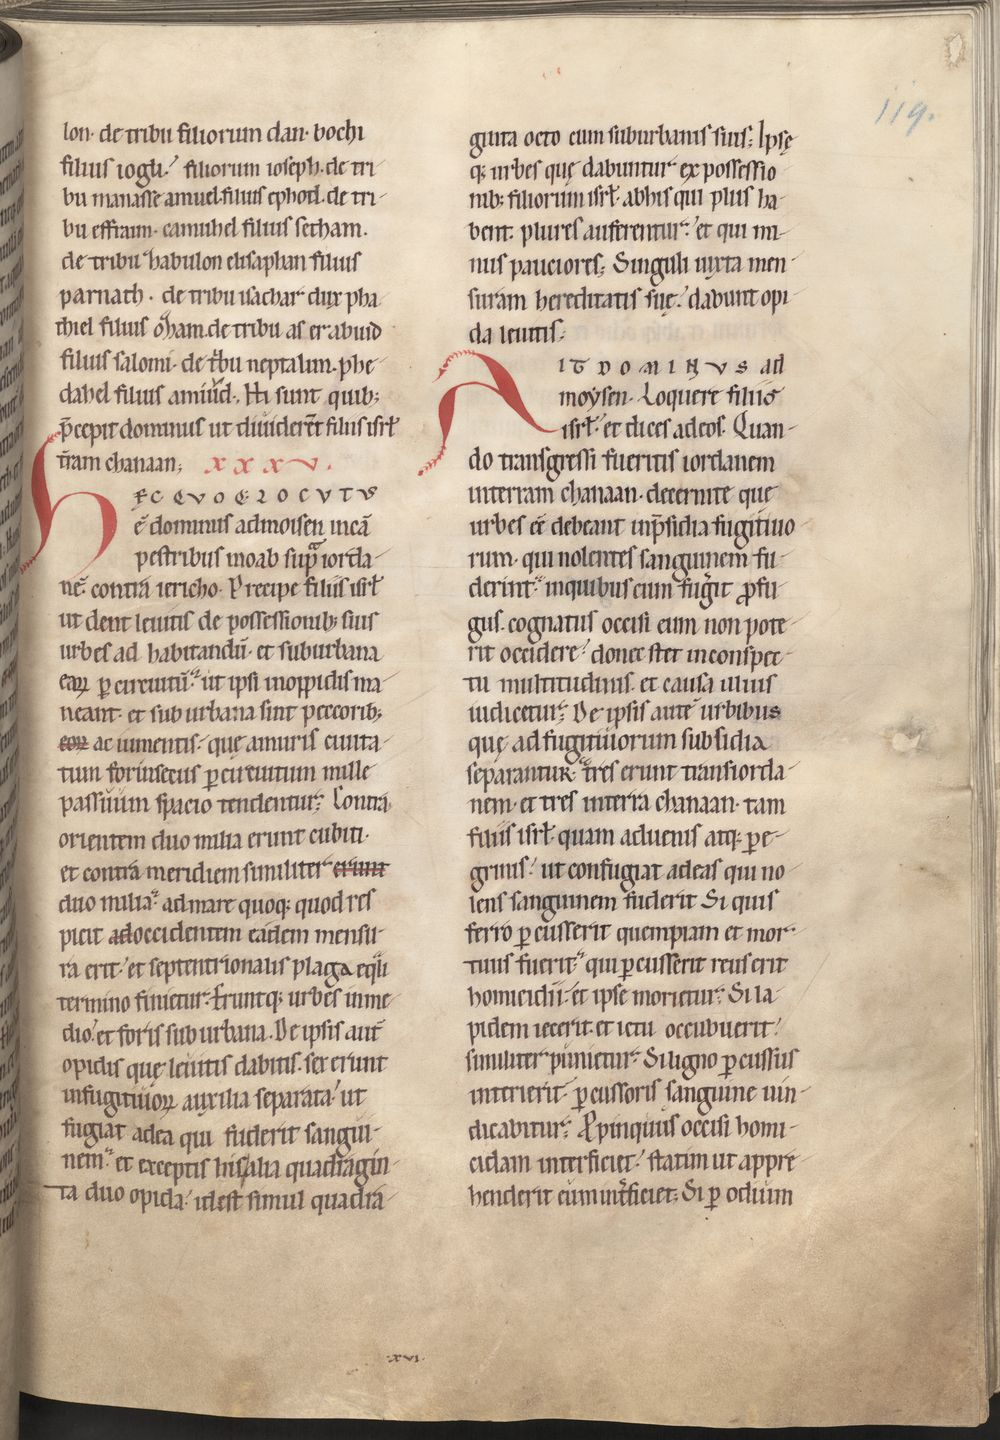 119.
lon· de tribu filiorum dan· bochi
filius iogli·' filiorum ioseph. de tri-
bu manasse amuel·filius ephod. de tri-
bu effraim· camuhel filius setham.
de tribu habulon elisaphan filius
parnath. de tribu isachar dux pha-
thiel filius oham. de tribu aser abuid
filius salomi· de tribu neptalim. phe-
dahel filius amiud., Hi sunt quib;
p̄cepit dominus ut diuiderēt filiis isrł
t̄ram chanaan; XXXV.
HĘC QVOQ; LOCVTVS
ē dominus ad moisen in cā
pestribus moab sup̄ iorda-
nē· contra iericho· Precipe filiis isrł
ut dent leuitis de possessionib; suis
urbes ad habitandū· et suburbana
eaꝝ ꝑ circuitū·' ut ipsi in oppidis ma-
neant· et suburbana sint peccorib;
eoꝝ ac iumentis·' quę a muris ciuita-
tum forinsecus ꝑ circuitum mille
passuum spacio tendentur·' Contra
orientem duo milia erunt cubiti·
et contra meridiem similiter erunt
duo milia·' ad mare quoq; quod res-
picit ad occidentem eadem mensu-
ra erit·' et septentrionalis plaga eqͣli
termino finietur·' Eruntq; urbes in me-
dio·' et foris suburbana. De ipsis aut̄
opidis quę leuitis dabitis· sex erunt
in fugitiuoꝝ auxilia separata·' ut
fugiat ad ea qui fuderit sangui-
nem·' et exceptis his alia quadragin-
ta duo opida·' id est simul quadra-
ginta octo cum suburbanis suis; Ipsę
q; urbes quę dabuntur ex possessio-
nib; filiorum isrł· ab his qui plus ha-
bent· plures auferentur·' et qui mi-
nus pauciores; Singuli iuxta men-
suram hereditatis suę·' dabunt opi-
da leuitis;
AIT DOMINVS ad
moysen· Loquere filiis
isrł·' et dices ad eos. Quan-
do transgressi fueritis iordanem
in terram chanaan· decernite quę
urbes eē debeant in p̄sidia fugitiuo-
rum· qui nolentes sanguinem fu-
derint·' in quibus cum fuḡit ꝓfu-
gus· cognatus occisi eum non pote-
rit occidere·' donec stet in conspec-
tu multitudinis· et causa illius
iudicetur·' De ipsis autē urbibus
quę ad fugitiuorum subsidia
separantur·' tres erunt trans iorda-
nem· et tres in terra chanaan· tam
filiis isrł· quam aduenis atq; ꝑe-
grinis·' ut confugiat ad eas qui no-
lens sanguinem fuderit Si quis
ferro ꝑcusserit quempiam et mor-
tuus fuerit·' qui ꝑcusserit reus erit
homicidii·' et ipse morietur·' Si la-
pidem iecerit· et ictu occubuerit·'
similiter punietur·' Si ligno ꝑcussus
interierit· ꝑcussoris sanguine uin-
dicabitur·' Ꝓpinquus occisi homi-
cidam interficiet·' statim ut appre-
henderit eum int̄ficiet; Si ꝑ odium
·xvi·